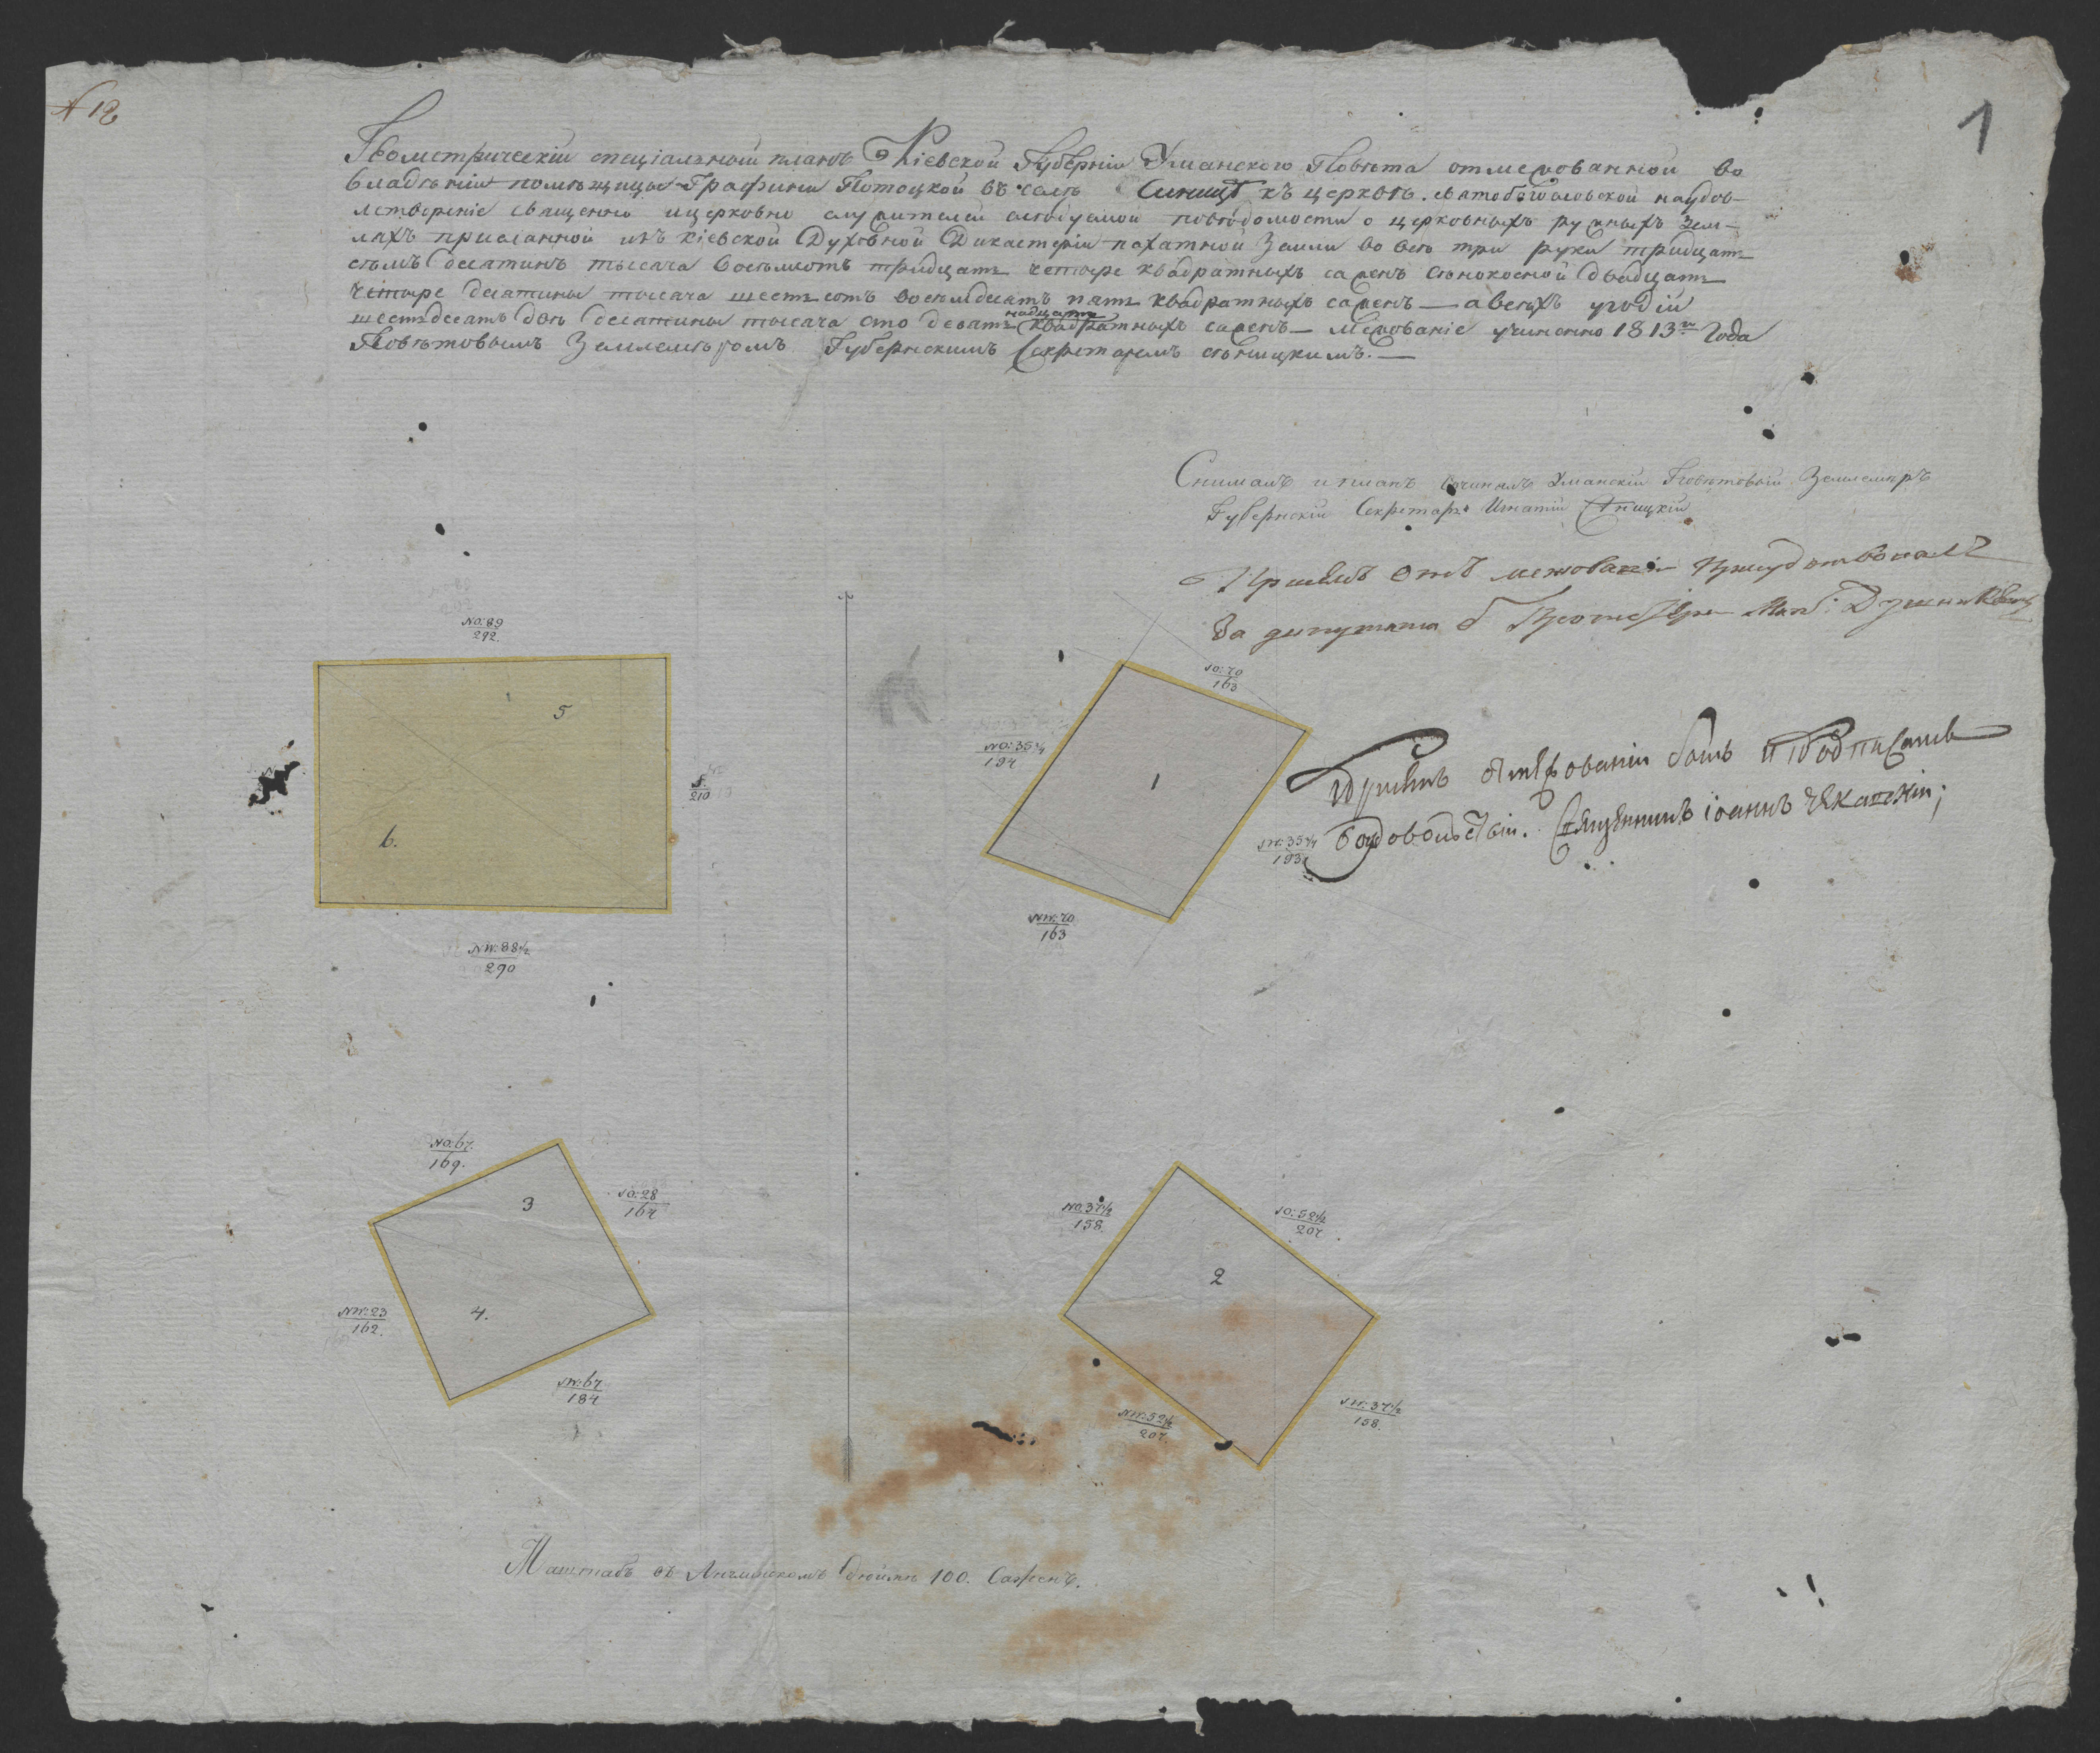 N 12
1
Геометрический специальный планъ Кіевской Губерніи Уманского Повѣта отмежованной во
владѣніи помѣщицы Графини Потоцкой въ селѣ Синицѣ къ церквѣ наудов-
летвореніе священно ицерковно служителей повѣдомости о церковныхъ ружныхъ зем-
ляхъ присланной изъ Кіевской Духовной Дикастеріи пахатной Земли во всѣ три руки тридцать
сѣмъ десятинъ тысяча восѣмсотъ тридцать четыре квадратныхъ саженъ сѣнокосной двадцать
четыре десятины тысяча шестьсотъ восѣмдесятъ пять квадратныхъ саженъ — авсѣхъ угодій
шестьдесятъ двѣ десятины тысяча сто девятьнадцать квадратныхъ саженъ — Межованіе учиненно 1813го Года
Повѣтовымъ Землемѣромъ Губернскимъ Секретаремъ сѣницкимъ. —
Снималъ и планъ сочинялъ Уманскій Повѣтовый Землемѣръ
Губернскій Секретарь Игнатій Сѣницкій
За депутата
Священникъ Іоаннъ
NO: 89
292.
5
6.
S.
210
NW: 88½
290
SO: 70
163
NO: 35¼
194
1
SW: 35¼
193
NW: 70
163
NO: 67.
169.
3
SO: 28
164
NW: 23
162.
4.
SW: 67
184
NO: 37½
158.
SO: 52½
207
2
NW: 52½
207.
SW: 37½
158.
Маштабъ въ Англинскомъ дюймѣ 100. Саженъ.